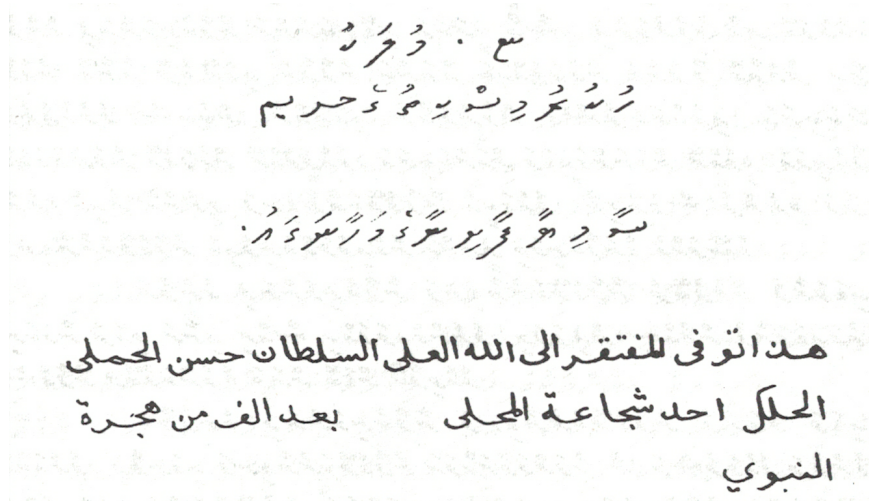 ޏ . މުލަކު
ހުކުރު މިސްކިތުގެ حريم
ސާމިޔާ ފާށިނާގެ މަހާނަ ގައު.
هذا توفى المفتقر الى الله العلى السلطان حسن الحملى
الحلكى احد شجاعة المحلى بعد الف من هجرة
النبوي